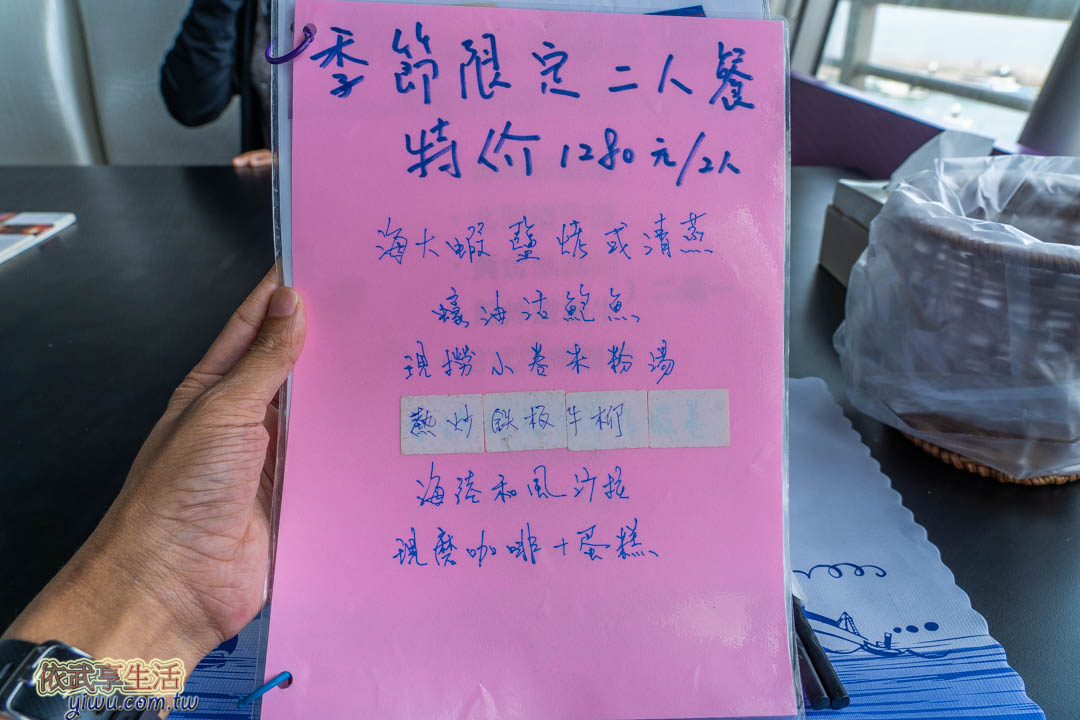 季節限定二人餐
特价1280元/2人
海大蝦鹽烤或清蒸
蠔海沽鮑魚
現撈小卷米粉湯
熱炒鉄板牛柳
海陸和風沙拉
現磨咖啡+蛋糕
依武享生活
yiwu.com.tw